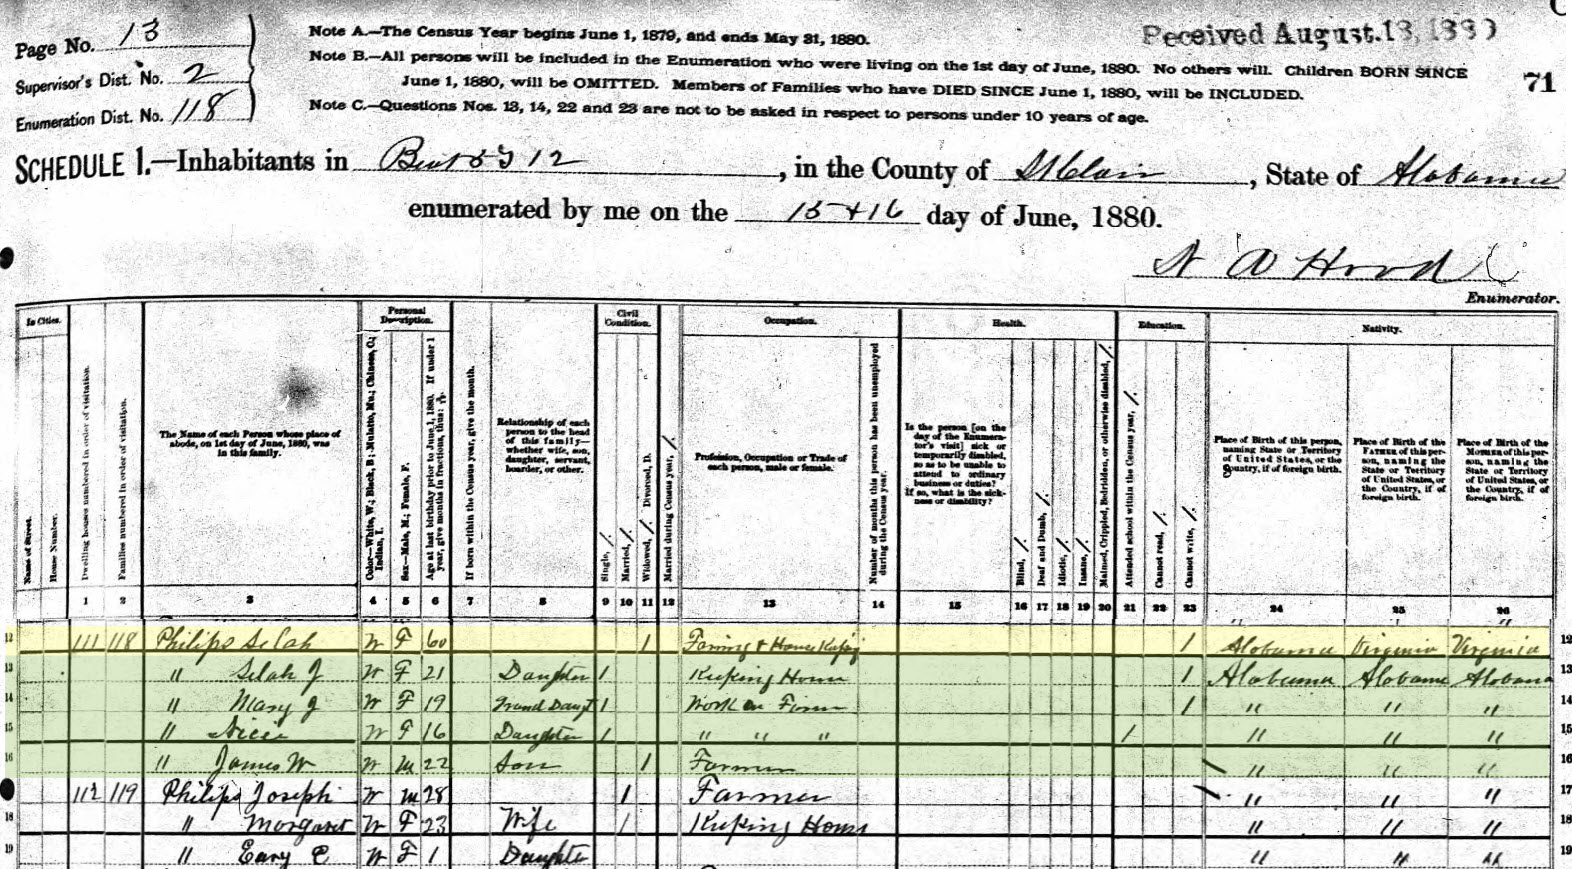 Page No. 13
Supervisor's Dist. No. 2
Enumeration Dist. No. 118
Note A.—The Census Year begins June 1, 1879, and ends May 31, 1880.
Note B.—All persons will be included in the Enumeration who were living on the 1st day of June, 1880. No others will. Children BORN SINCE
June 1, 1880, will be OMITTED. Members of Families who have DIED SINCE June 1, 1880, will be INCLUDED.
Note C.—Questions Nos. 13, 14, 22 and 23 are not to be asked in respect to persons under 10 years of age.
Received August 13, 1880
71
SCHEDULE 1.—Inhabitants in Beat 12, in the County of St Clair, State of Alabama
enumerated by me on the 15 + 16 day of June, 1880.
A Hood
Enumerator.
In Cities.
Name of Street.
House Number.
Dwelling houses numbered in order of visitation.
Families numbered in order of visitation.
The Name of each Person whose place of abode, on 1st day of June, 1880, was in this family.
Personal Description.
Color—White, W.; Black, B.; Mulatto, Mu.; Chinese, C.; Indian, I.
Sex—Male, M.; Female, F.
Age at last birthday prior to June 1, 1880. If under 1 year, give months in fractions, thus:
If born within the Census year, give the month.
Relationship of each person to the head of this family—whether wife, son, daughter, servant, boarder, or other.
Civil Condition.
Single, /.
Married, /.
Widowed, /. Divorced, D.
Married during Census year, /.
Occupation.
Profession, Occupation or Trade of each person, male or female.
Number of months this person has been unemployed during the Census year.
Health.
Is the person [on the day of the Enumerator's visit] sick or temporarily disabled, so as to be unable to attend to ordinary business or duties? If so, what is the sickness or disability?
Blind, /.
Deaf and Dumb, /.
Idiotic, /.
Insane, /.
Maimed, Crippled, Bedridden, or otherwise disabled, /.
Education.
Attended school within the Census year, /.
Cannot read, /.
Cannot write, /.
Nativity.
Place of Birth of this person, naming State or Territory of United States, or the Country, if of foreign birth.
Place of Birth of the FATHER of this person, naming the State or Territory of United States, or the Country, if of foreign birth.
Place of Birth of the MOTHER of this person, naming the State or Territory of United States, or the Country, if of foreign birth.
1 2 3 4 5 6 7 8 9 10 11 12 13 14 15 16 17 18 19 20 21 22 23 24 25 26
12 111 118 Philips Selah W F 60 1 Faming & House Keeping 1 Alabama Virginia Virginia 12
13 " Selah J W F 21 Daughter 1 Keeping House 1 Alabama Alabama Alabama 13
14 " Mary J W F 19 Grand Daugt 1 Work on Farm 1 " " " 14
15 " Nicie W F 16 Daughter 1 " " " 1 " " " 15
16 " James W W M 22 Son 1 Farmer " " " 16
17 112 119 Philips Joseph W M 28 1 Farmer " " " 17
18 " Margaret W F 23 Wife 1 Keeping House " " " 18
19 " Eary E W F 1 Daughter " " " 19